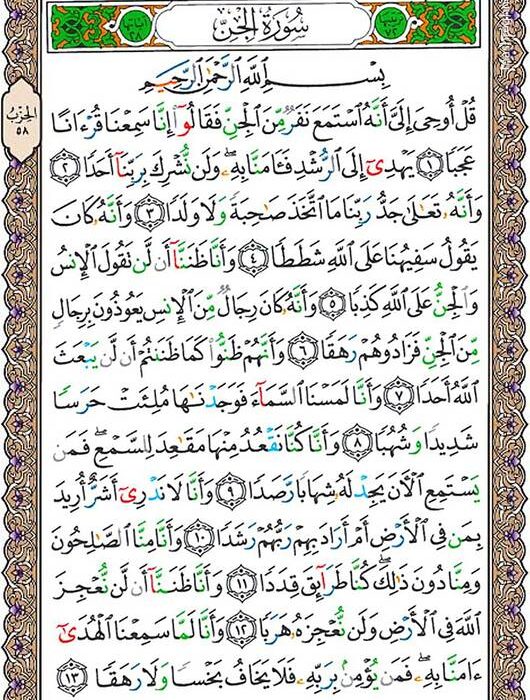 ترتيبها ٧٢ سُورَةُ الْجِنّ آياتها ٢٨
بِسْمِ اللَّهِ الرَّحْمَٰنِ الرَّحِيمِ
قُلْ أُوحِيَ إِلَيَّ أَنَّهُ ٱسْتَمَعَ نَفَرٌ مِّنَ ٱلْجِنِّ فَقَالُوٓا۟ إِنَّا سَمِعْنَا قُرْءَانًا
عَجَبًا ١ يَهْدِىٓ إِلَى ٱلرُّشْدِ فَـَٔامَنَّا بِهِۦ ۖ وَلَن نُّشْرِكَ بِرَبِّنَآ أَحَدًا ٢
وَأَنَّهُۥ تَعَٰلَىٰ جَدُّ رَبِّنَا مَا ٱتَّخَذَ صَٰحِبَةً وَلَا وَلَدًا ٣ وَأَنَّهُۥ كَانَ
يَقُولُ سَفِيهُنَا عَلَى ٱللَّهِ شَطَطًا ٤ وَأَنَّا ظَنَنَّآ أَن لَّن نَقُولَ ٱلْإِنسُ
وَٱلْجِنُّ عَلَى ٱللَّهِ كَذِبًا ٥ وَأَنَّهُۥ كَانَ رِجَالٌ مِّنَ ٱلْإِنسِ يَعُوذُونَ بِرِجَالٍ
مِّنَ ٱلْجِنِّ فَزَادُوهُمْ رَهَقًا ٦ وَأَنَّهُمْ ظَنُّوا۟ كَمَا ظَنَنتُمْ أَن لَّن يَبْعَثَ
ٱللَّهُ أَحَدًا ٧ وَأَنَّا لَمَسْنَا ٱلسَّمَآءَ فَوَجَدْنَٰهَا مُلِئَتْ حَرَسًا
شَدِيدًا وَشُهُبًا ٨ وَأَنَّا كُنَّا نَقْعُدُ مِنْهَا مَقَٰعِدَ لِلسَّمْعِ ۖ فَمَن
يَسْتَمِعِ ٱلْـَٔانَ يَجِدْ لَهُۥ شِهَابًا رَّصَدًا ٩ وَأَنَّا لَا نَدْرِىٓ أَشَرٌّ أُرِيدَ
بِمَن فِى ٱلْأَرْضِ أَمْ أَرَادَ بِهِمْ رَبُّهُمْ رَشَدًا ١٠ وَأَنَّا مِنَّا ٱلصَّٰلِحُونَ
وَمِنَّا دُونَ ذَٰلِكَ ۖ كُنَّا طَرَآئِقَ قِدَدًا ١١ وَأَنَّا ظَنَنَّآ أَن لَّن نُّعْجِزَ
ٱللَّهَ فِى ٱلْأَرْضِ وَلَن نُّعْجِزَهُۥ هَرَبًا ١٢ وَأَنَّا لَمَّا سَمِعْنَا ٱلْهُدَىٰٓ
ءَامَنَّا بِهِۦ ۖ فَمَن يُؤْمِنۢ بِرَبِّهِۦ فَلَا يَخَافُ بَخْسًا وَلَا رَهَقًا ١٣
الحِزْبُ
٥٨